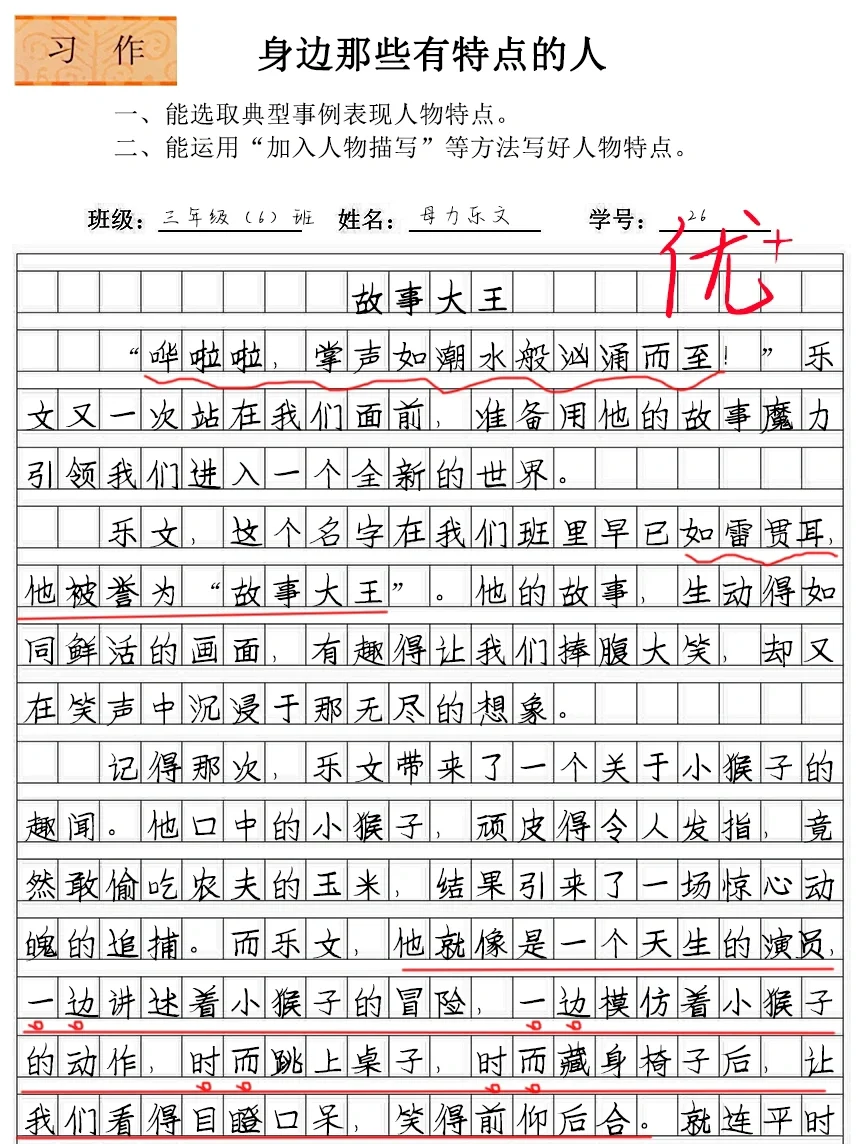 习 作
身边那些有特点的人
一、能选取典型事例表现人物特点。
二、能运用“加入人物描写”等方法写好人物特点。
班级：三年级（6）班 姓名：母力乐文 学号：26
优+
故事大王
“哗啦啦，掌声如潮水般汹涌而至！”乐
文又一次站在我们面前，准备用他的故事魔力
引领我们进入一个全新的世界。
乐文，这个名字在我们班里早已如雷贯耳，
他被誉为“故事大王”。他的故事，生动得如
同鲜活的画面，有趣得让我们捧腹大笑，却又
在笑声中沉浸于那无尽的想象。
记得那次，乐文带来了一个关于小猴子的
趣闻。他口中的小猴子，顽皮得令人发指，竟
然敢偷吃农夫的玉米，结果引来了一场惊心动
魄的追捕。而乐文，他就像是一个天生的演员，
一边讲述着小猴子的冒险，一边模仿着小猴子
的动作，时而跳上桌子，时而藏身椅子后，让
我们看得目瞪口呆，笑得前仰后合。就连平时